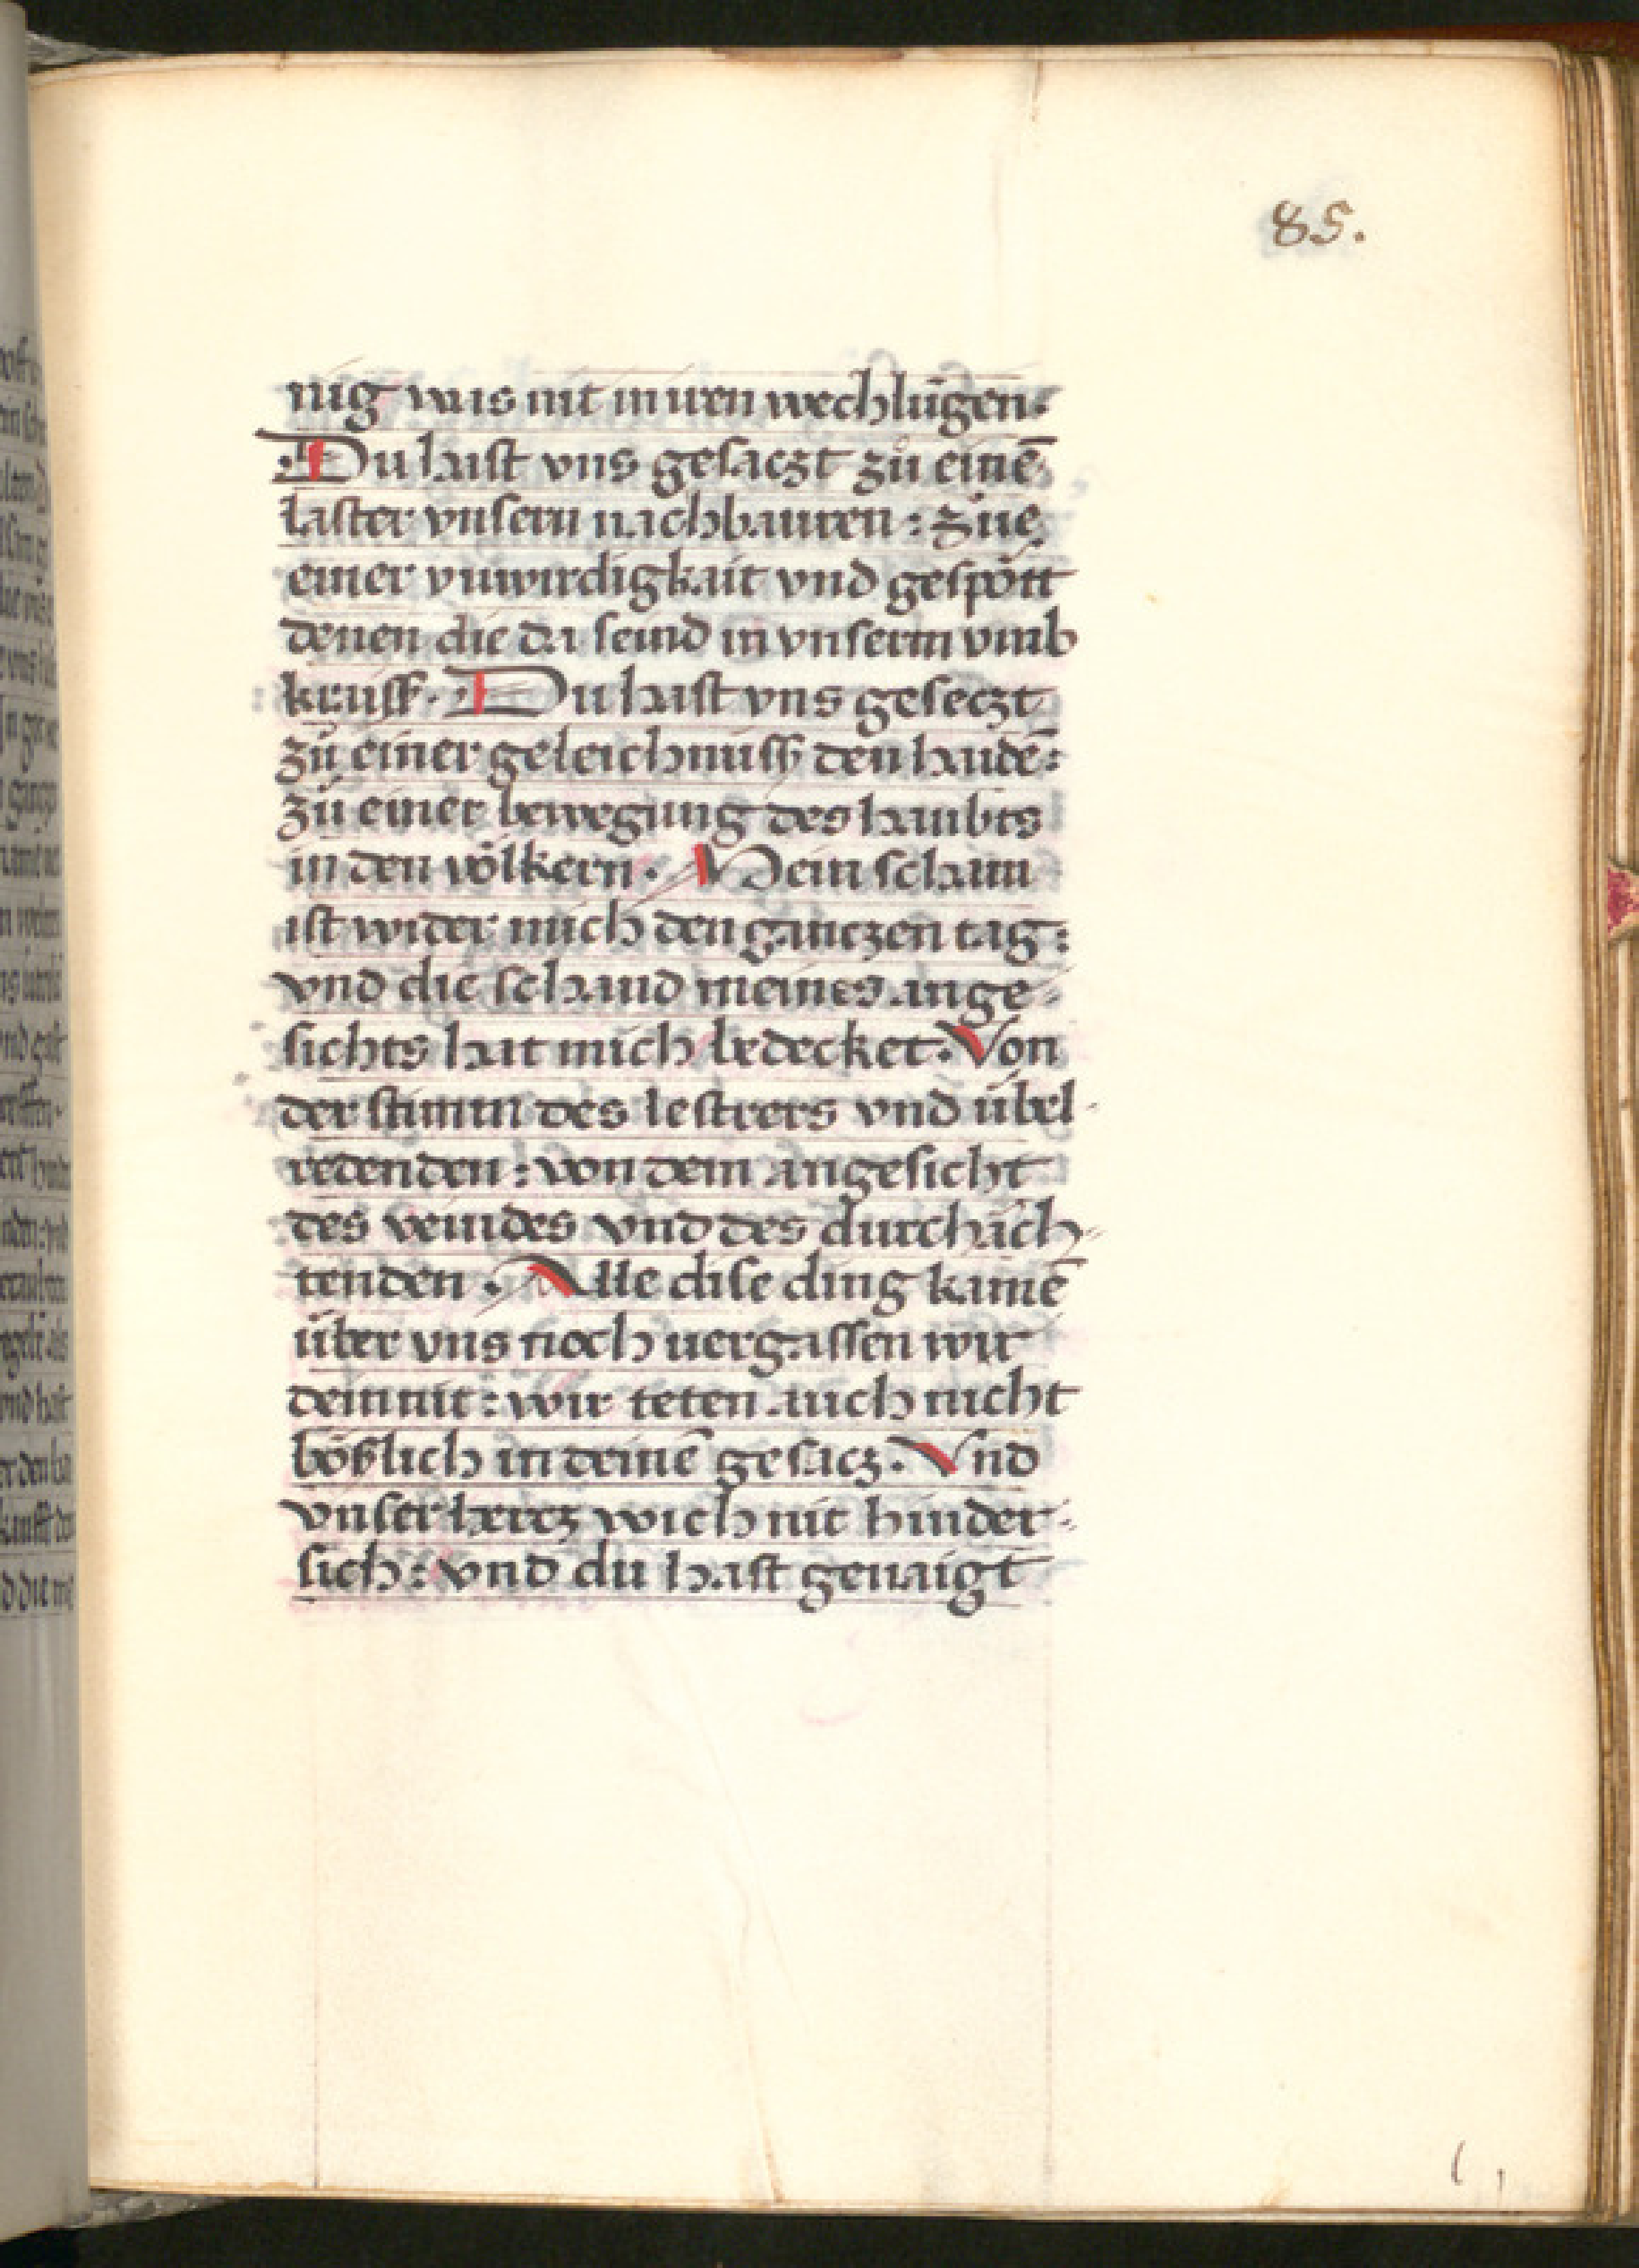 85.
nig was nit in iren wechslu̅gen.
Du hast vns gesaczt zů eine̅
laster vnsern nachbauren : zu̇e
einer vnwirdigkait vnd gespött
denen die da seind in vnserm vmb
kraiss. Du hast vns geseczt
zů einer geleichnuss den haide̅:
zů einer bewegung des haubts
in den völkern. Mein scham
ist wider mich den ganczen tag:
vnd die schand meines ange-
sichts hat mich bedecket. Von
der stimm des lestrers vnd übel-
redenden : von dem angesicht
des veindes vnd des durchäch-
tenden. Alle dise ding kame̅
über vns noch uergassen wir
dein nit: wir teten auch nicht
bößlich in deine̅ gesacz. Vnd
vnser hercz wich nit hinder-
sich : vnd du hast genaigt